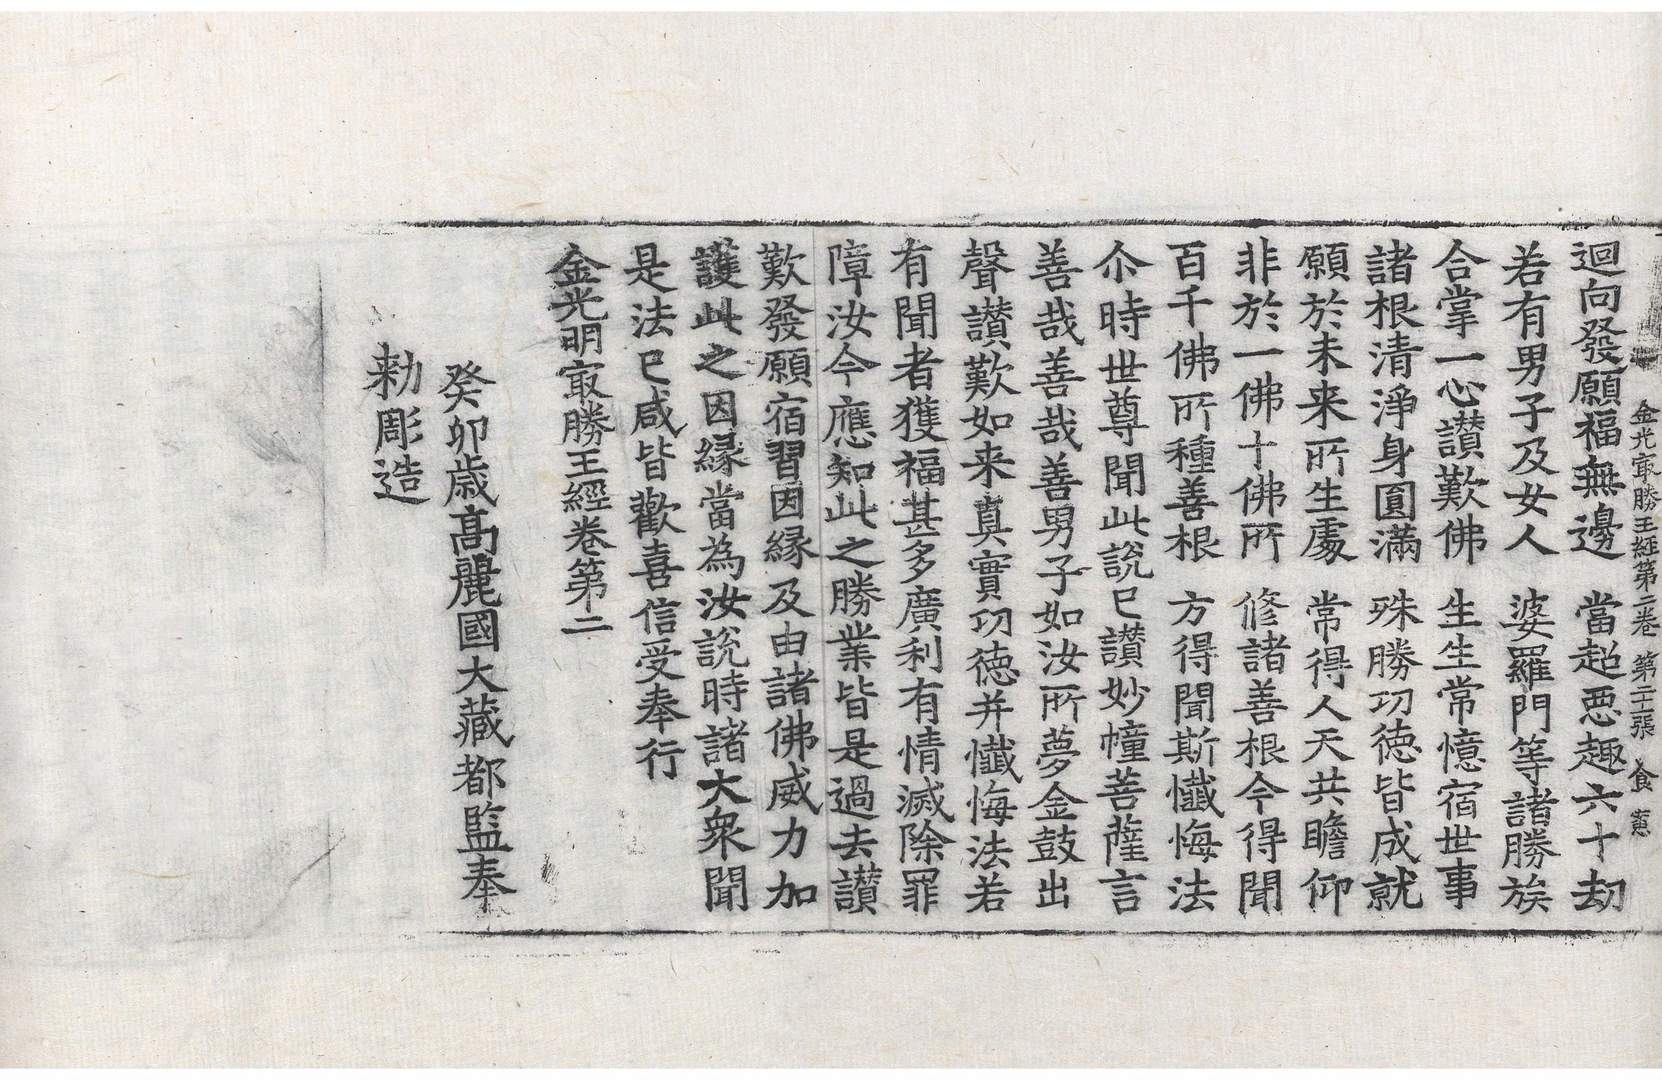 金光㝡勝王經第二卷 第二十張 食
迴向發願福無邊 當超惡趣六十劫
若有男子及女人 婆羅門等諸勝族
合掌一心讃歎佛 生生常憶宿世事
諸根清淨身圓滿 殊勝功徳皆成就
願於未来所生處 常得人天共瞻仰
非於一佛十佛所 修諸善根今得聞
百千佛所種善根 方得聞斯懺悔法
尒時世尊聞此説已讃妙幢菩薩言
善哉善哉善男子如汝所夢金鼓出
聲讃歎如来真實功徳并懺悔法若
有聞者獲福甚多廣利有情滅除罪
障汝今應知此之勝業皆是過去讃
歎發願宿習因縁及由諸佛威力加
護此之因縁當為汝説時諸大衆聞
是法已咸皆歡喜信受奉行
金光明㝡勝王經卷第二
癸卯歳高麗國大藏都監奉
勑彫造